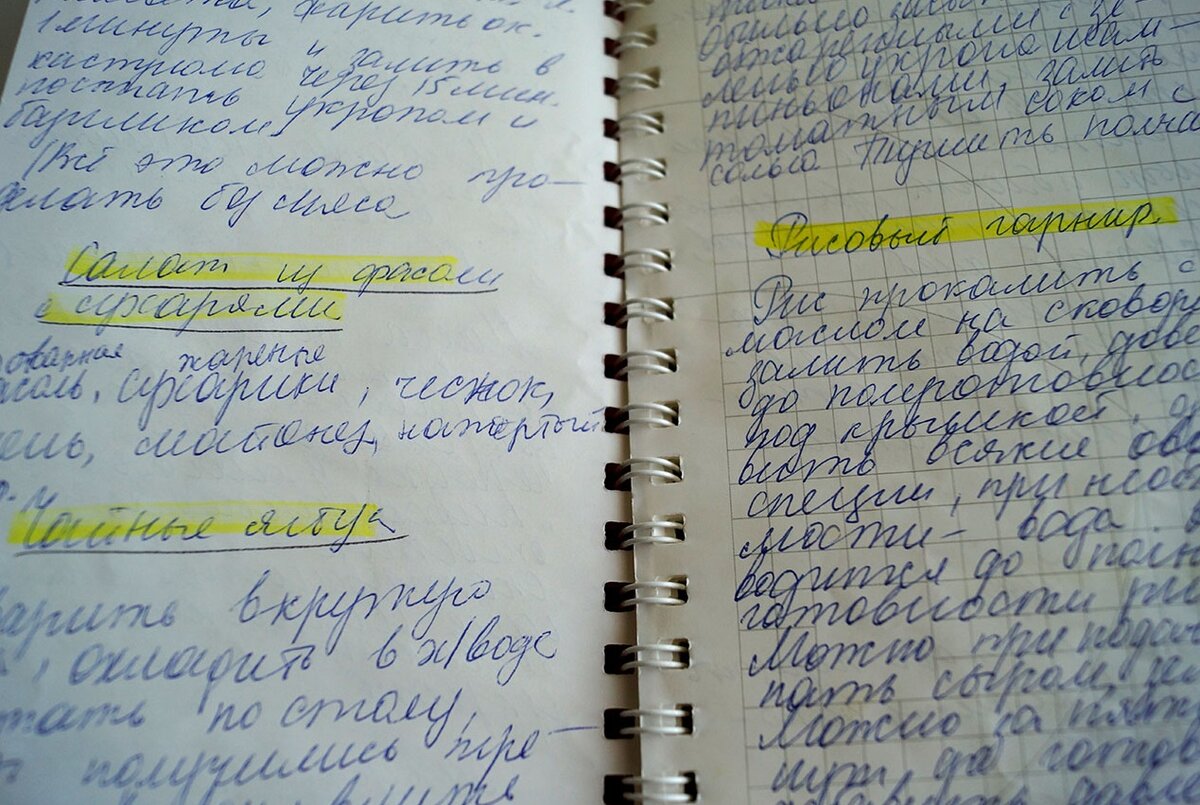 жарить ок.
1 минуты и залить в
кастрюлю
постоять через 15 мин.
базиликом укропом и
(Всё это можно про-
делать без мяса
Салат из фасоли
с сухарями
жареные
сухарики, чеснок,
майонез, натёртый
Чайные яйца
варить вкрутую
охладить в х/воде
по столу,
получились тре-
ожаренными с зе-
ленью укропа и шам-
пиньонами, залить
томатным соком с
солью Тушить полча
Рисовый гарнир.
Рис прокалить с
маслом на сковор
залить водой, дове
до полуготовнос
под крышкой, до
вить всякие ово
специи, при необ
мости - вода.
водится до полн
готовности рис
Можно при подач
пать сыром, ил
Можно за пять
нут до готов